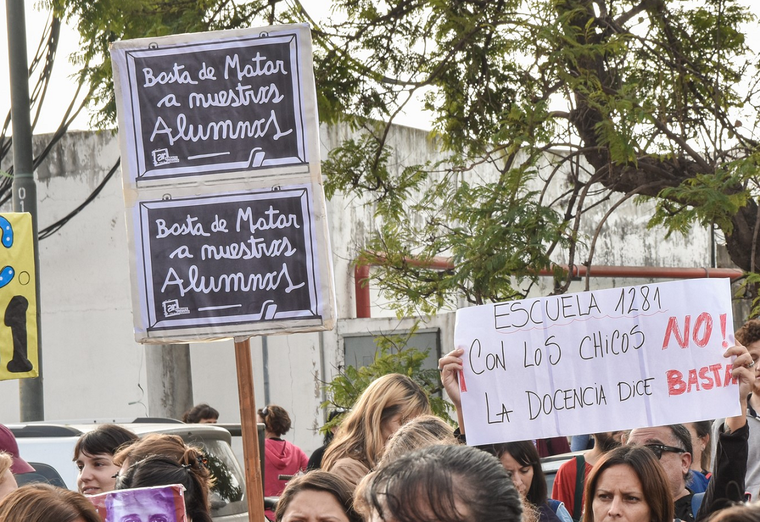 Basta de Matar
a nuestrxs
Alumnxs
Basta de Matar
a nuestrxs
Alumnxs
ESCUELA 1281
¡CON LOS CHICOS NO!
LA DOCENCIA DICE BASTA
1